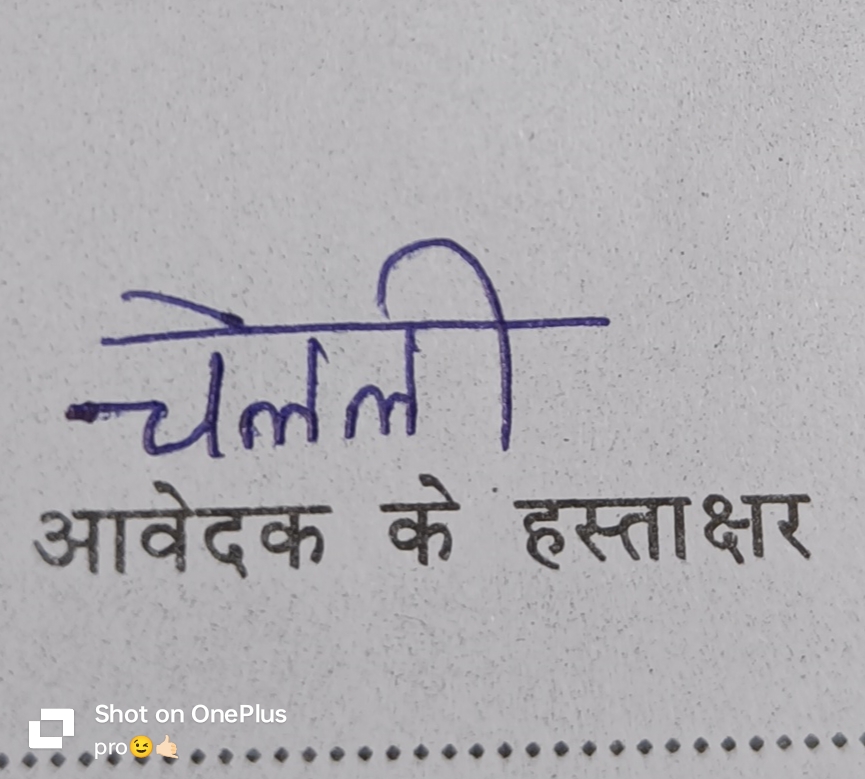 चेलली
आवेदक के हस्ताक्षर
Shot on OnePlus
pro😉🤙🏻